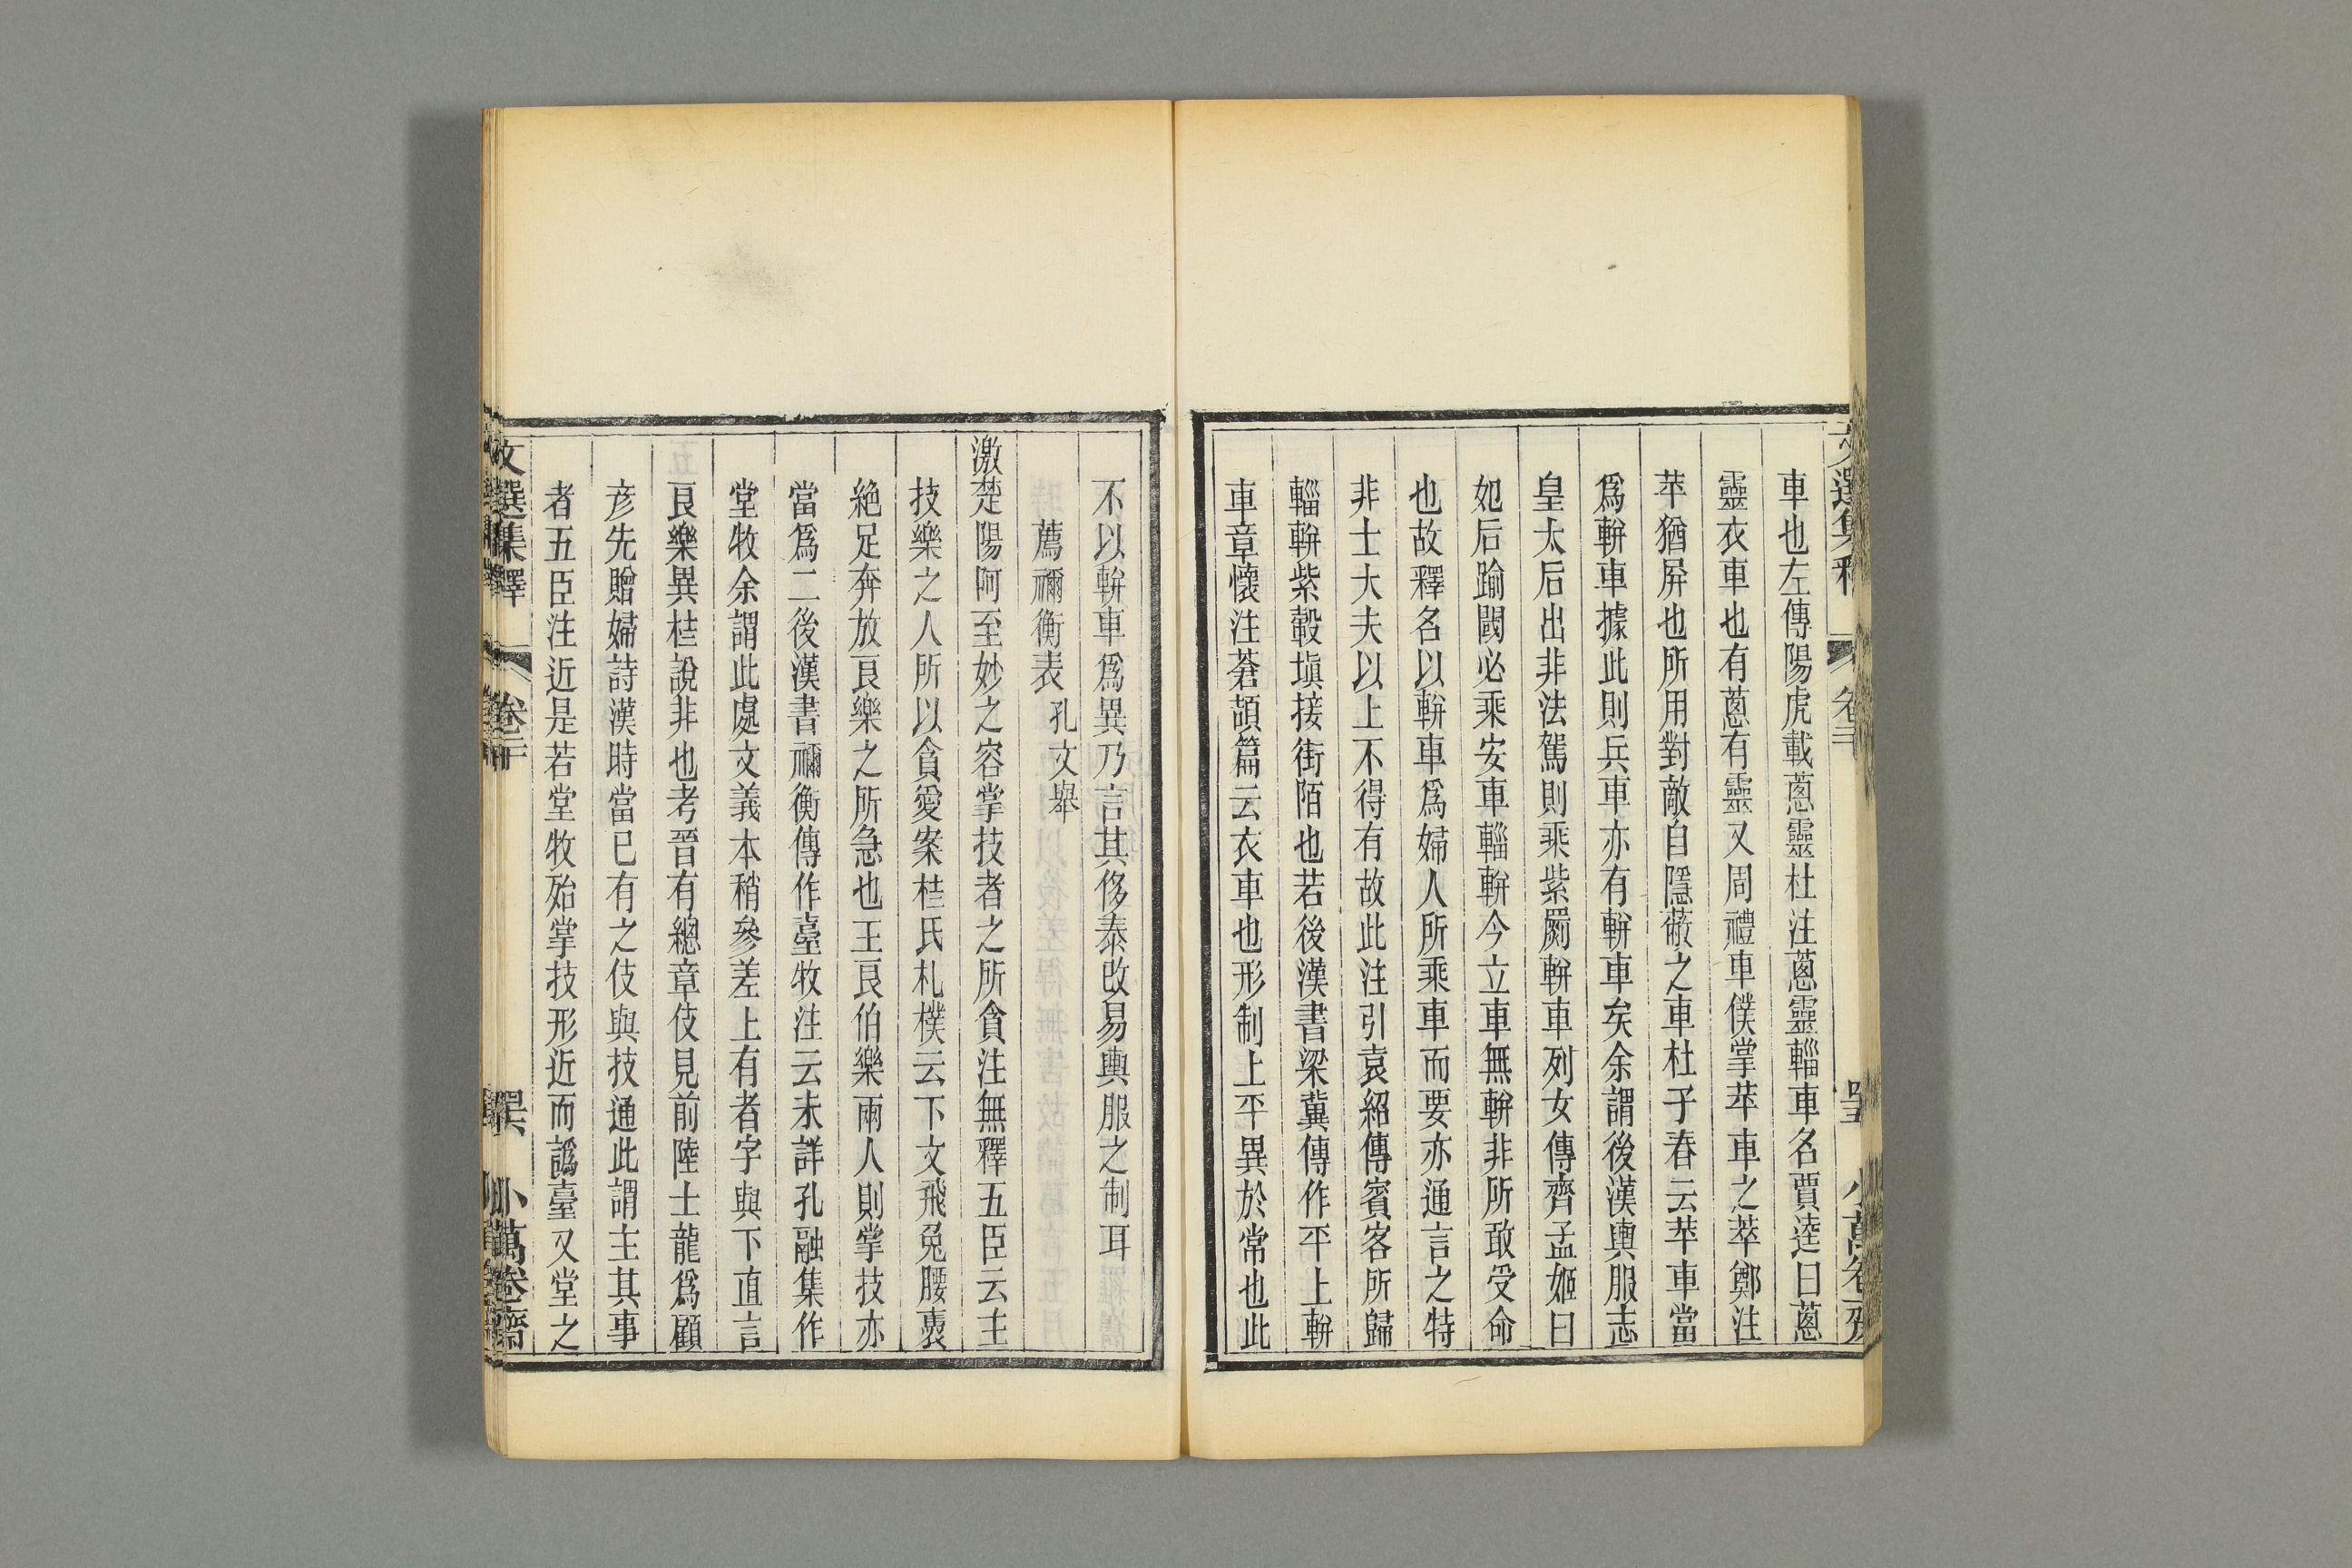 車也左傳陽虎載蔥靈杜注蔥靈輜車名賈逵曰蔥
靈衣車也有蔥有靈又周禮車僕掌苹車之萃鄭注
苹猶屏也所用對敵自隱蔽之車杜子春云苹車當
爲軿車據此則兵車亦有軿車矣余謂後漢輿服志
皇太后出非法駕則乘紫罽軿車列女傳齊孟姬曰
妃后踰閾必乘安車輜軿今立車無軿非所敢受命
也故釋名以軿車爲婦人所乘車而要亦通言之特
非士大夫以上不得有故此注引袁紹傳賓客所歸
輜軿紫轂塡接街陌也若後漢書梁冀傳作平上軿
車章懷注蒼頡篇云衣車也形制上平異於常也此
不以軿車爲異乃言其侈泰改易輿服之制耳
薦禰衡表 孔文舉
激楚陽阿至妙之容掌技者之所貪注無釋五臣云主
技樂之人所以貪愛案桂氏札樸云下文飛兔腰褭
絶足奔放良樂之所急也王良伯樂兩人則掌技亦
當爲二後漢書禰衡傳作臺牧注云未詳孔融集作
堂牧余謂此處文義本稍參差上有者字與下直言
良樂異桂說非也考晉有總章伎見前陸士龍爲顧
彦先贈婦詩漢時當已有之伎與技通此謂主其事
者五臣注近是若堂牧殆掌技形近而譌臺又堂之
文選集釋 卷二十 小萬卷齋